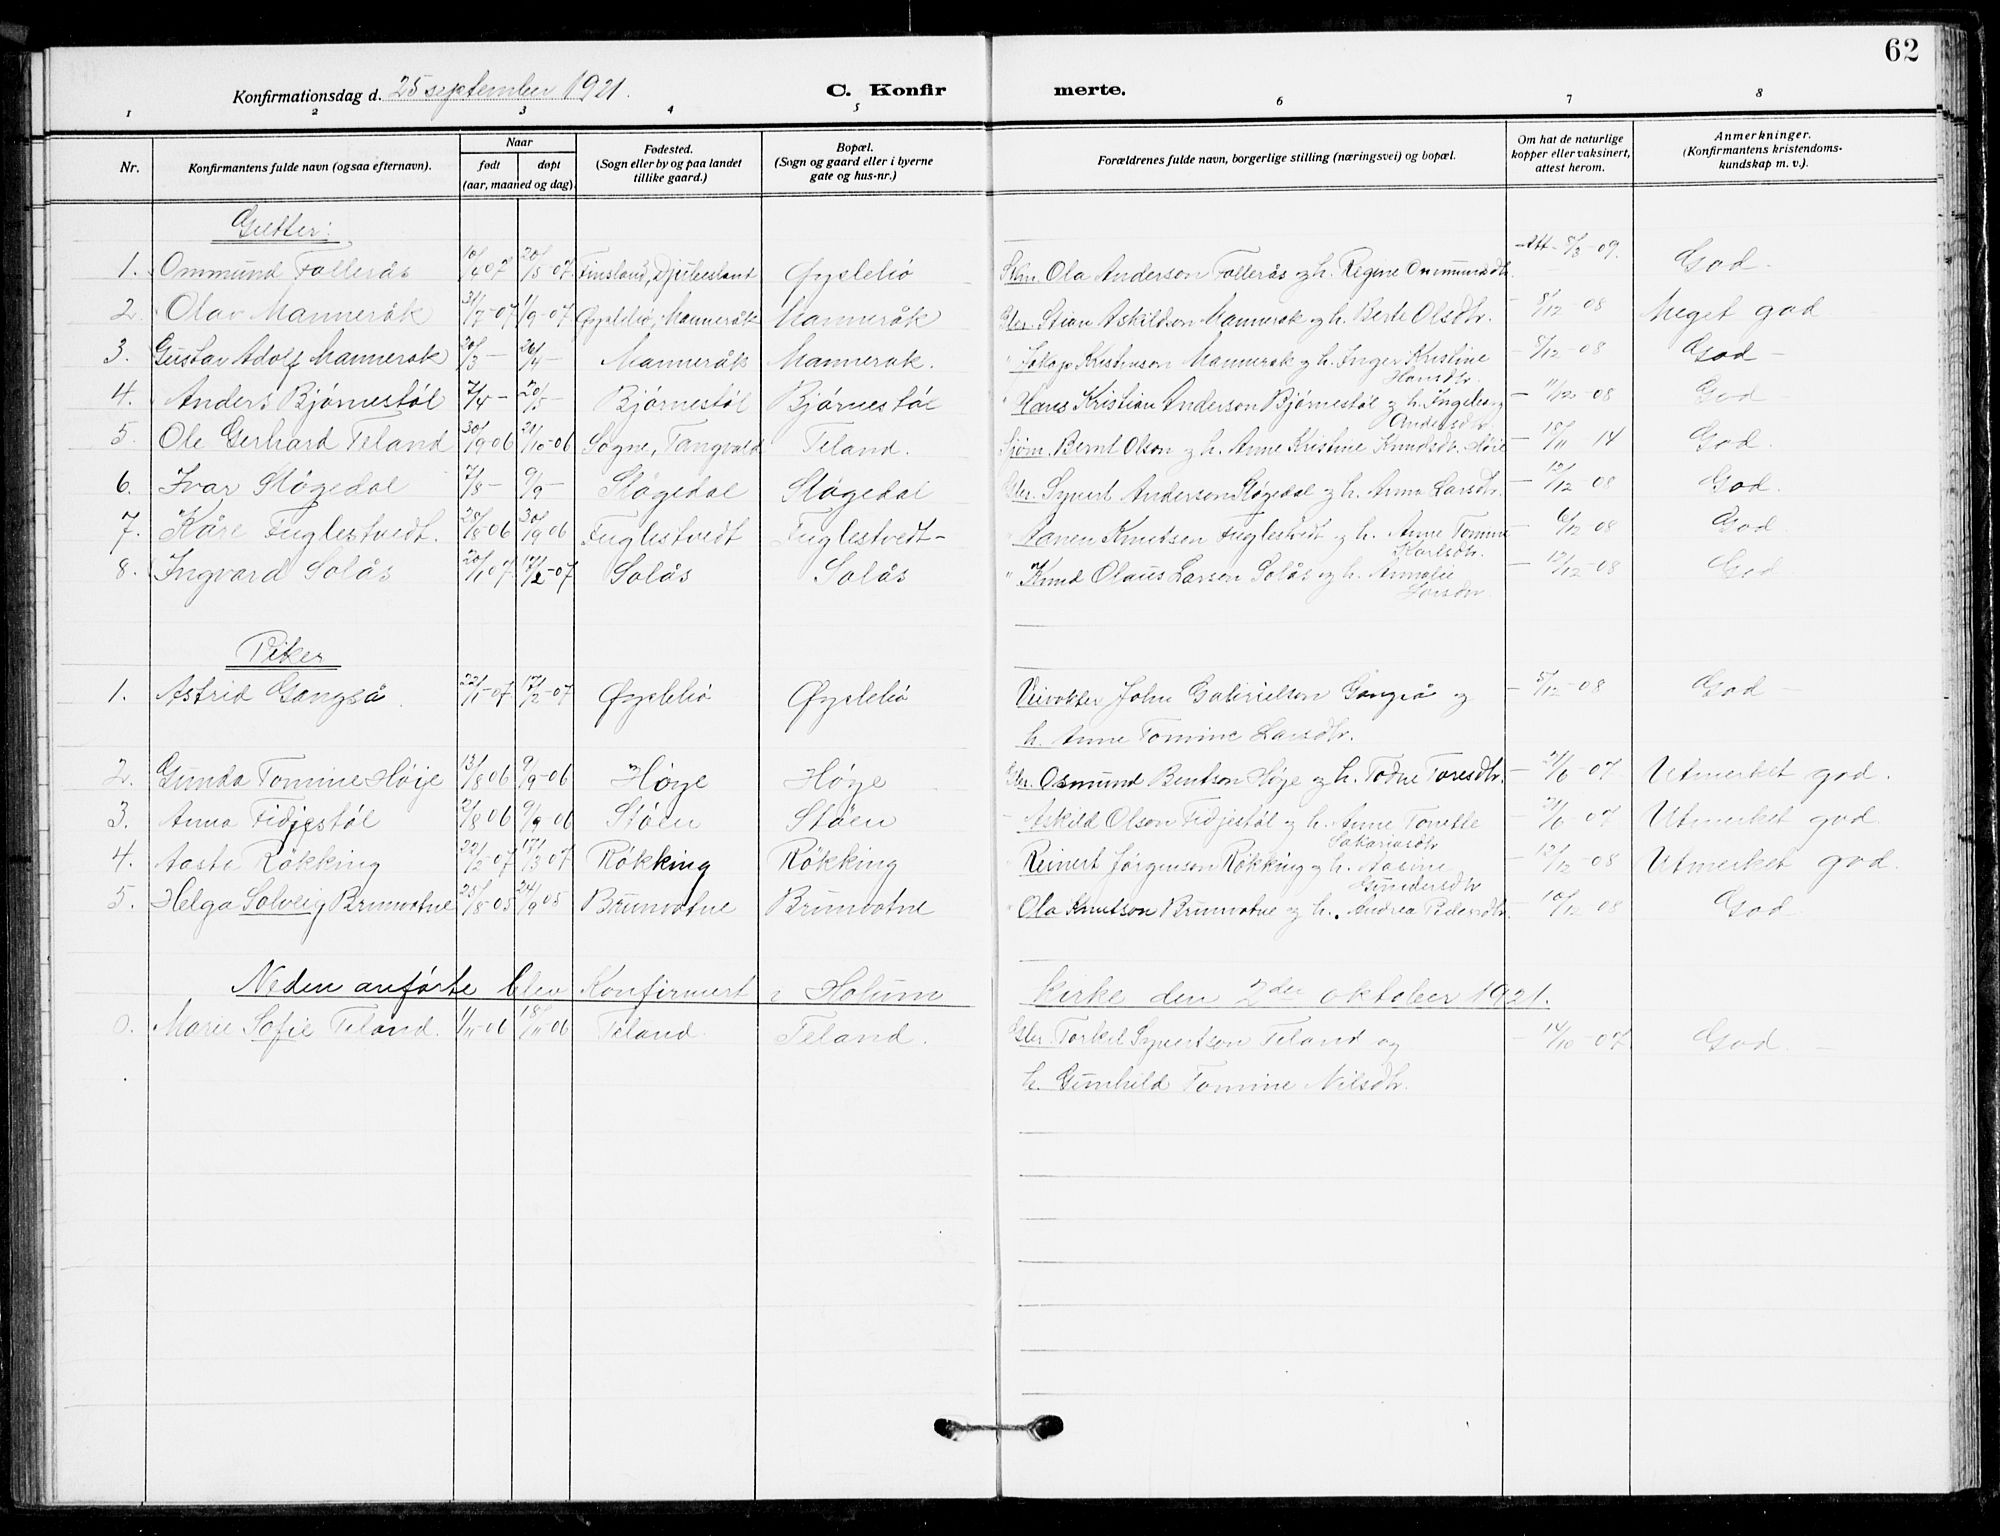 62
Konfirmationsdag d. 25 september 1921.
C. Konfirmerte.
1 2 3 4 5 6 7 8
Nr. Konfirmantens fulde navn (ogsaa efternavn). Naar født døpt (aar, maaned og dag). Fødested. (Sogn eller by og paa landet tillike gaard.) Bopæl. (Sogn og gaard eller i byerne gate og hus-nr.) Forældrenes fulde navn, borgerlige stilling (næringsvei) og bopæl. Om hat de naturlige kopper eller vaksinert, attest herom. Anmerkninger. (Konfirmantens kristendoms-kundskap m. v.).
Gutter:
1. Ommund Follerås 10/4 07 20/5 07 Finsland, Øyslebø Ola Anderson Follerås og h. Regine Ommundsdtr. Att. 8/3 - 09. God -
2. Olav Manneråk 31/7-07 1/9-07 Øyslebø, Manneråk Manneråk Gbr. Stian Askildson Mannerak og h. Berte Olsdtr. - 8/12 - 08 Meget god
3. Gustav Adolf Mannerak 20/3 - 26/4 - Manneråk Mannerak. " Jakop Kristenson Mannerak og h. Inger Kristine Hansdtr. - 8/12 - 08 God -
4. Anders Bjørnestøl 7/4 - 20/5 - Bjørnestøl Bjørnestøl " Hans Kristian Anderson Bjørnestøl og h. Ingeborg Andersdtr. - 11/12 - 08 God
5. Ole Gerhard Teland 30/9 06 21/10-06 Søgne, Tangvald Teland. Sjøm. Bernt Olson og h. Anne Kristine Knudsdtr. Høie - 18/11 14 God.
6. Ivar Støgedal 7/8 - 9/9 - Støgedal Støgedal Gbr. Syvert Anderson Støgedal og h. Anna Larsdtr. - 12/12 - 08 God.
7. Kåre Fuglestvedt. 28/8 06 30/9 06 Fuglestvedt Fuglestvedt - " Aanen Knutsen Fuglestvedt og h. Anne Tomine Karlsdtr. - 6/12 - 08 God
8. Ingvard Solås 20/1 07. 17/2-07 Solås Solås " Knud Olaus Larsen Solås og h. Annalie - 12/12 - 08 God.
Piker
1. Astrid Gangså. 22/1-07 17/2-07 Øyslebø Øyslebø Veivokter John Gabrielson Gangså og - 5/12 - 08 God -
h. Anne Tomine Larsdtr.
2. Gunda Tomine Høie 13/8 06 9/9-06 Høye Høye Gbr. Osmund Bentson Høje og h. Todne Toresdtr. - 21/6 - 07 Utmerket god.
3. Anna Fidjestøl 2/8 06 9/9-06 Støen Støen - Askild Olson Fidjestøl og h. Anne Tonette Sakariasdtr - 21/6 - 07 Utmerket god.
4. Aaste Røkking 22/2-07 17/3-07 Røkking Røkking " Reinert Jørgenson Røkking og h. Aasine Gundersdtr - 12/12 - 08 Utmerket god
5. Helga Solveig Brunvatne 25/8-05 24/9 05 Brunvatne Brunvatne " Ola Knutson Brunvatne og h. Andrea Pedersdtr. - 10/12 08 God
Neden anførte blev Konfirmert i Holum kirke den 2den oktober 1921.
0. Marie Sofie Teland. 1/11-06 18/11 06 Teland. Teland. Gbr. Torkel Syvertson Teland og - 14/10 - 07 God. -
h. Gunhild Tomine Nilsdtr.